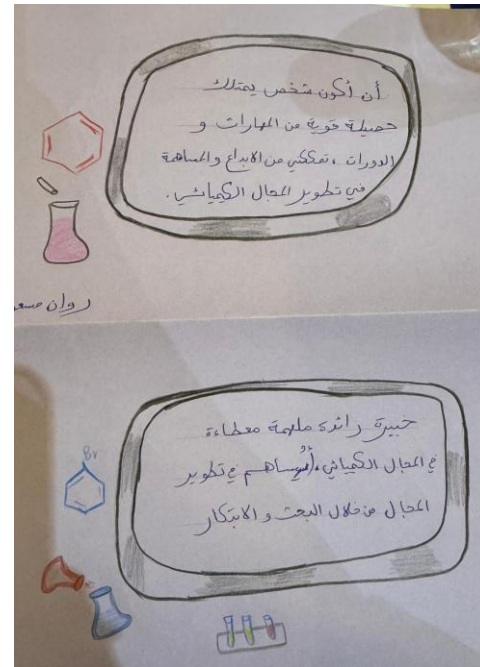 أن أكون شخص يمتلك
حصيلة قوية من المهارات و
الدورات ، تمكنني من الابداع والمساهمة
في تطوير المجال الكيميائي .
روان
خبيرة رائدة ملهمة معطاءة
في المجال الكيميائي ، أساهم في تطوير
المجال من خلال البحث و الابتكار
Br